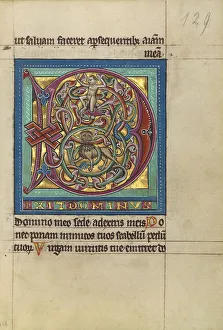 129
ut salvam faceret apsequentibꝫ aīam
meā
D
IXIT DOMINVS
Domino meo sede adextris meis Do
nec ponam inimicos tuos scabellū pedū
tuoꝝ Virgam virtutis tue emittet do